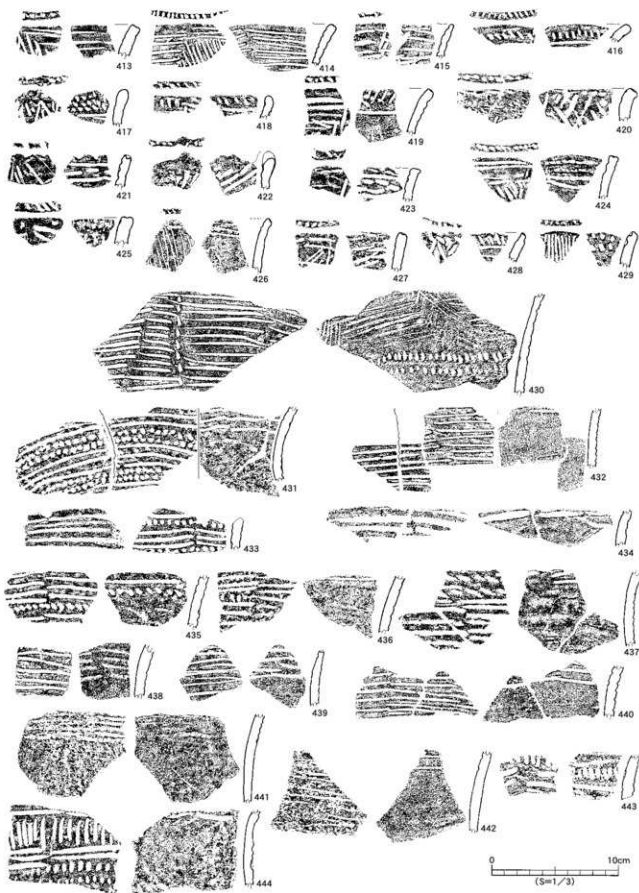 413 414 415 416
417 418 419 420
421 422 423 424
425 426 427 428 429
430
431 432
433 434
435 436 437
438 439 440
441 442 443
444
0 10cm
(S=1/3)